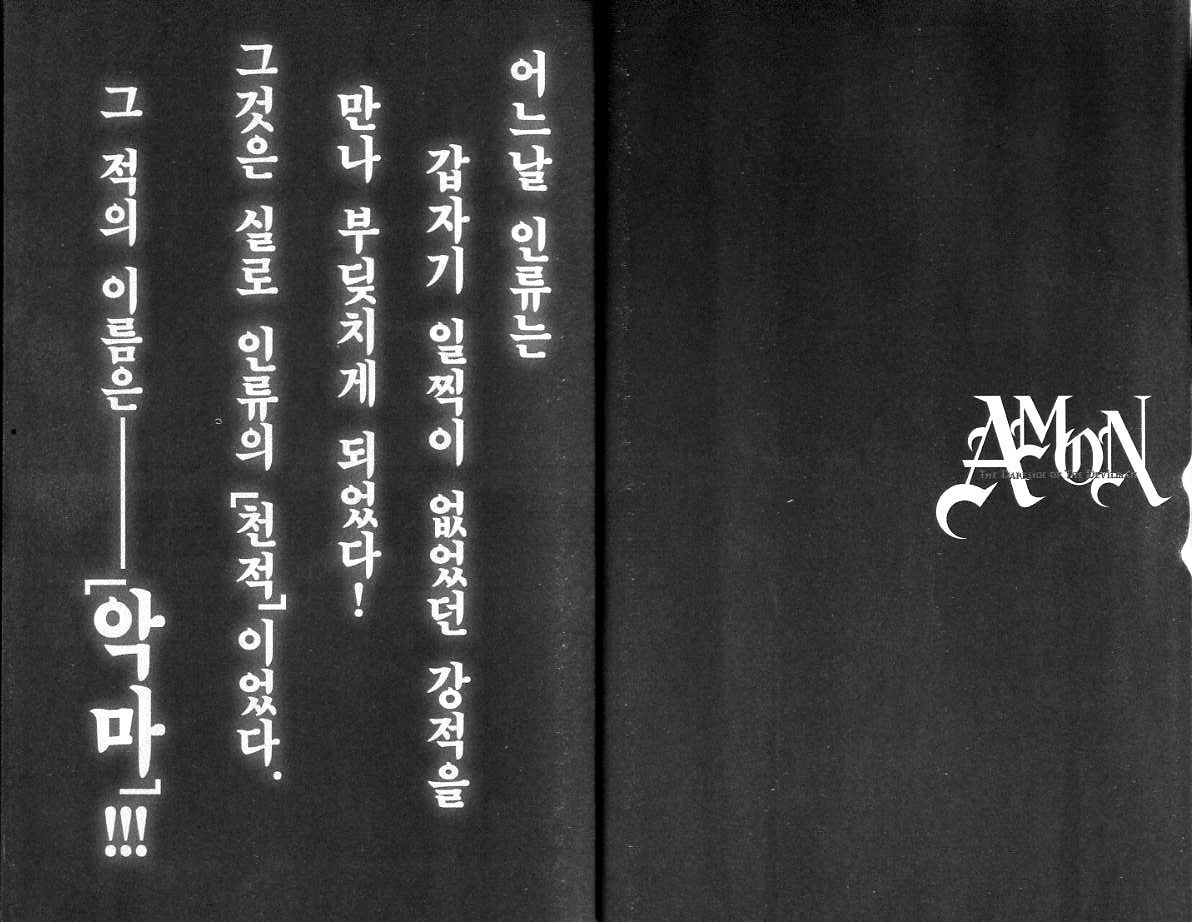 AMON
THE DARKSIDE OF THE DEVILMAN
어느날 인류는
갑자기 일찍이 없었던 강적을
만나 부딪치게 되었다!
그것은 실로 인류의 「천적」이었다.
그 적의 이름은──「악마」!!!